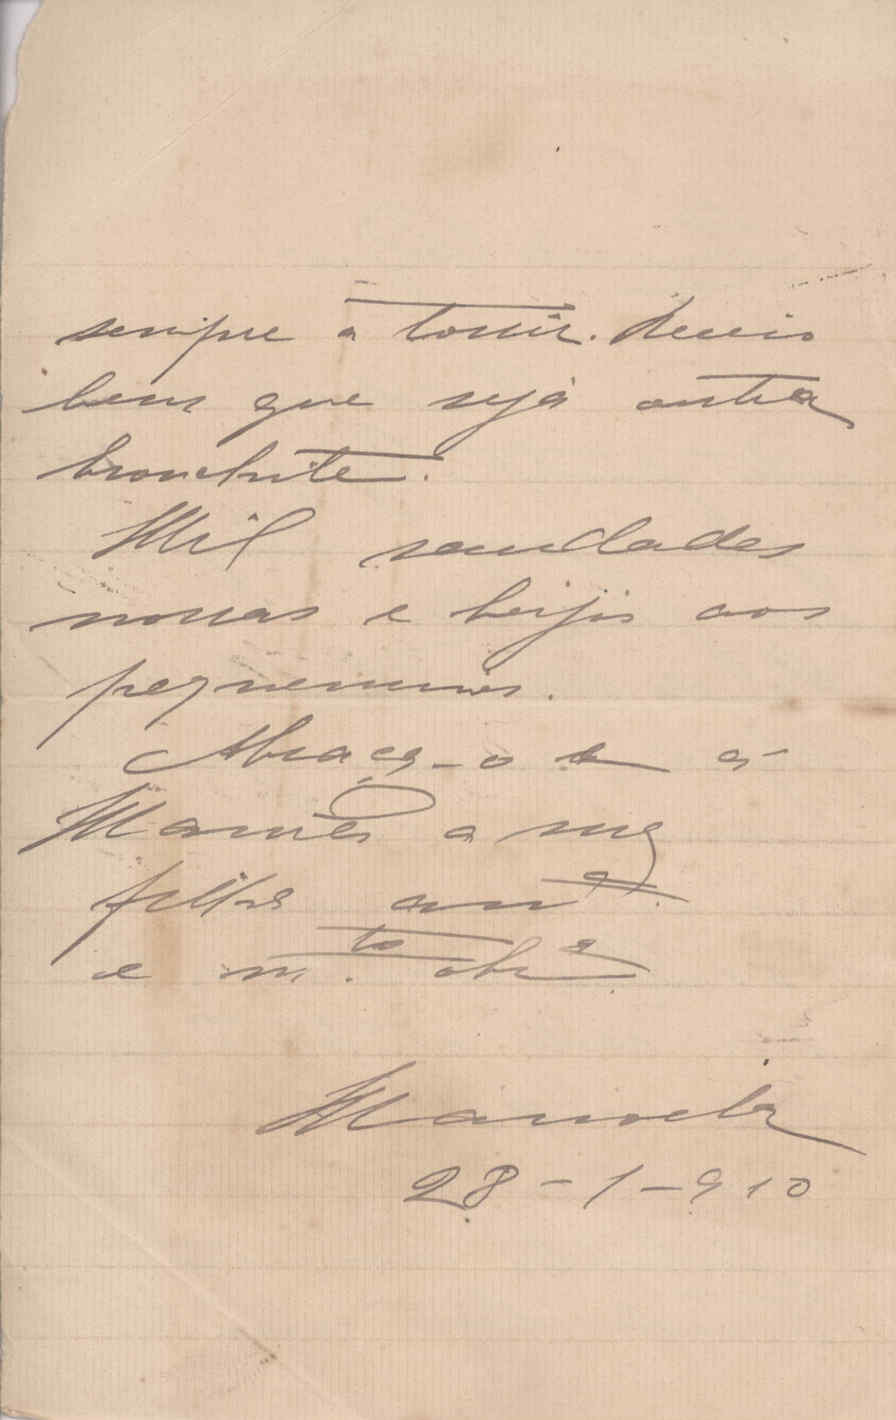 sempre a tossir. Receio
bem que seja outra
bronchite.
Mil saudades
nossas e beijos aos
pequeninos.
Abraça-o e á
Mamã a sua
filha am.ª
e m.to obr.ª
Manoela
28-1-910